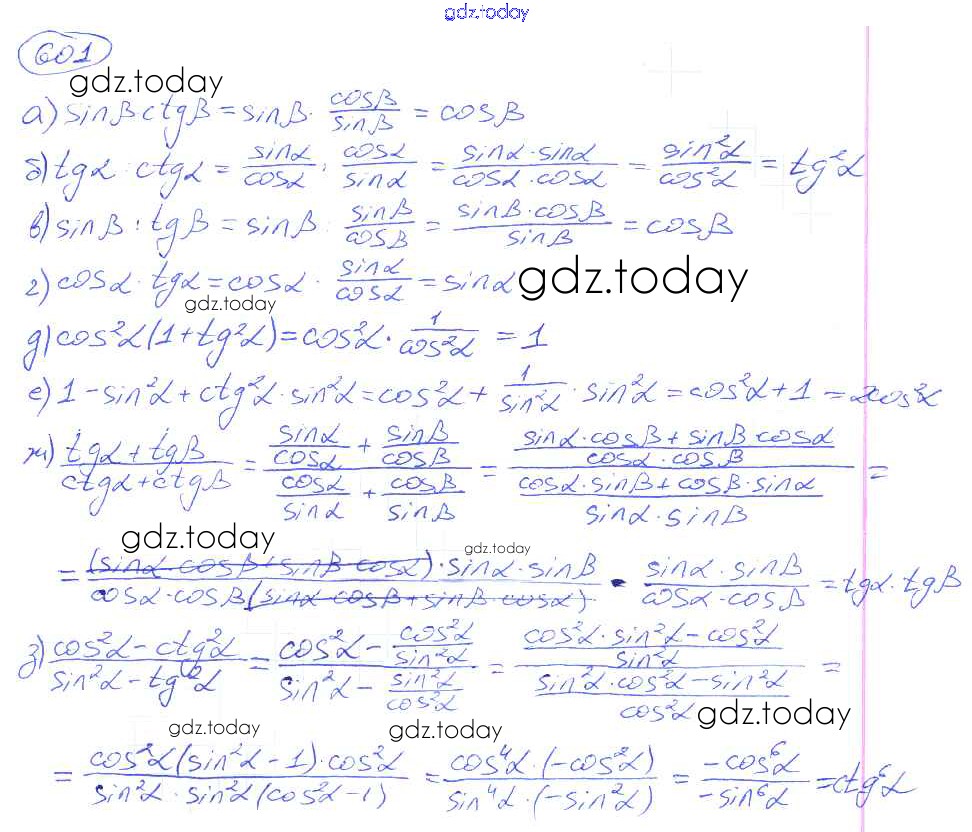 gdz.today
601
gdz.today
а) sinβ ctgβ = sinβ · cosβ/sinβ = cosβ
б) tgα : ctgα = sinα/cosα : cosα/sinα = (sinα · sinα)/(cosα · cosα) = sin²α/cos²α = tg²α
в) sinβ : tgβ = sinβ : sinβ/cosβ = (sinβ · cosβ)/sinβ = cosβ
г) cosα · tgα = cosα · sinα/cosα = sinα gdz.today
gdz.today
д) cos²α(1 + tg²α) = cos²α · 1/cos²α = 1
е) 1 - sin²α + ctg²α · sin²α = cos²α + 1/sin²α · sin²α = cos²α + 1 = 2cos²α
ж) (tgα + tgβ)/(ctgα + ctgβ) = (sinα/cosα + sinβ/cosβ)/(cosα/sinα + cosβ/sinβ) = ((sinα · cosβ + sinβ cosα)/(cosα · cosβ))/((cosα · sinβ + cosβ · sinα)/(sinα · sinβ)) =
gdz.today
gdz.today
= ((sinα cosβ + sinβ cosα) · sinα · sinβ)/(cosα · cosβ(sinα cosβ + sinβ cosα)) = (sinα · sinβ)/(cosα · cosβ) = tgα · tgβ
з) (cos²α - ctg²α)/(sin²α - tg²α) = (cos²α - cos²α/sin²α)/(sin²α - sin²α/cos²α) = ((cos²α · sin²α - cos²α)/sin²α)/((sin²α · cos²α - sin²α)/cos²α) =
gdz.today
gdz.today gdz.today
= (cos²α(sin²α - 1) · cos²α)/(sin²α · sin²α(cos²α - 1)) = (cos⁴α · (-cos²α))/(sin⁴α · (-sin²α)) = -cos⁶α/-sin⁶α = ctg⁶α